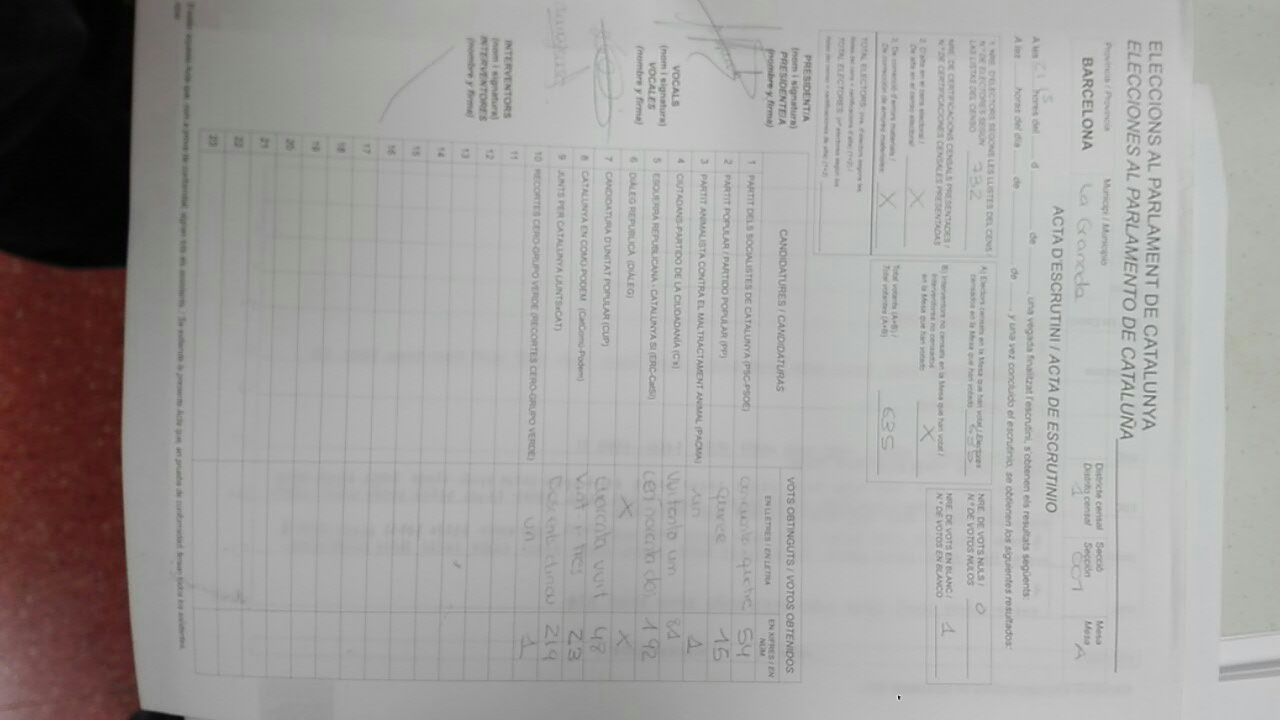 ELECCIONS AL PARLAMENT DE CATALUNYA
ELECCIONES AL PARLAMENTO DE CATALUÑA
Província / Provincia
Municipi / Municipio
Districte censal
Distrito censal
Secció
Sección
Mesa
Mesa
BARCELONA
La Granada
1
001
A
ACTA D'ESCRUTINI / ACTA DE ESCRUTINIO
A les hores del d de , una vegada finalitzat l'escrutini, s'obtenen els resultats següents:
A las horas del día de de y una vez concluido el escrutinio, se obtienen los siguientes resultados:
1. NRE. D'ELECTORS SEGONS LES LLISTES DEL CENS /
N.º DE ELECTORES SEGÚN
LAS LISTAS DEL CENSO 732
NRE. DE CERTIFICACIONS CENSALS PRESENTADES /
N.º DE CERTIFICACIONES CENSALES PRESENTADAS
2. D'alta en el cens electoral /
De alta en el censo electoral X
3. De correcció d'errors materials /
De corrección de errores materiales X
A) Electors censats en la Mesa que han votat / Electores
censados en la Mesa que han votado 635
B) Interventors no censats en la Mesa que han votat /
Interventores no censados
en la Mesa que han votado X
Total votants (A+B) /
Total votantes (A+B) 635
NRE. DE VOTS NULS /
N.º DE VOTOS NULOS 0
NRE. DE VOTS EN BLANC /
N.º DE VOTOS EN BLANCO 1
PRESIDENTA
(nom i signatura)
PRESIDENTE/A
(nombre y firma)
VOCALS
(nom i signatura)
VOCALES
(nombre y firma)
INTERVENTORS
(nom i signatura)
INTERVENTORES
(nombre y firma)
CANDIDATURES / CANDIDATURAS
VOTS OBTINGUTS / VOTOS OBTENIDOS
EN LLETRES / EN LETRA
EN XIFRES / EN NÚM
1 PARTIT DELS SOCIALISTES DE CATALUNYA (PSC-PSOE) 54
2 PARTIT POPULAR / PARTIDO POPULAR (PP) quinze 15
3 PARTIT ANIMALISTA CONTRA EL MALTRACTAMENT ANIMAL (PACMA) un 1
4 CIUTADANS-PARTIDO DE LA CIUDADANÍA (C's) vuitanta un 81
5 ESQUERRA REPUBLICANA - CATALUNYA SÍ (ERC-CatSí) 192
6 DIÀLEG REPUBLICÀ (DIÀLEG) X X
7 CANDIDATURA D'UNITAT POPULAR (CUP) vuit 48
8 CATALUNYA EN COMÚ-PODEM (CatComú-Podem) vint i tres 23
9 JUNTS PER CATALUNYA (JUNTSxCAT) 219
10 RECORTES CERO-GRUPO VERDE (RECORTES CERO-GRUPO VERDE) un 1
11
12
13
14
15
16
17
18
19
20
21
22
23